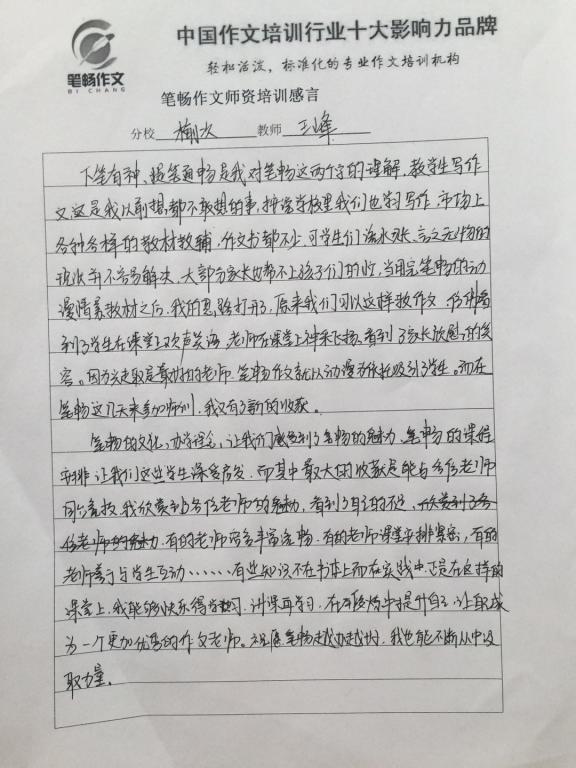 笔畅作文
BI CHANG
中国作文培训行业十大影响力品牌
轻松活泼，标准化的专业作文培训机构
笔畅作文师资培训感言
分校 榆次 教师 王峰
下笔有神、提笔通畅是我对笔畅这两个字的理解，教学生写作
文这是我以前想都不敢想的事，按说学校里我们也学习写作，市场上
各种各样的教材教辅，作文书都不少，可学生们流水账、言之无物的
现状并不容易解决，大部分家长也帮不上孩子们的忙，当用完笔畅的动
漫情景教材之后，我的思路打开了，原来我们可以这样教作文，仿佛看
到了学生在课堂上欢声笑语，老师在课堂上神采飞扬，看到了家长欣慰的笑
容。因为兴趣是最好的老师，笔畅作文就以动漫为依托吸引了学生。而在
笔畅这几天来参加师训，我又有了新的收获。
笔畅的文化、办学理念，让我们感受到了笔畅的魅力，笔畅的课程
安排让我们这些学生深受启发，而其中最大的收获是能与各位老师
同台竞技，我欣赏到各位老师的魅力，看到了自己的不足，欣赏到了各
位老师的魅力，有的老师内容丰富流畅，有的老师课堂安排紧密，有的
老师善于与学生互动……有些知识不在书本上而在实践中，正是在这样的
课堂上，我能够快乐得学习，讲课再学习，在反馈中提升自己，让我成
为一个更加优秀的作文老师。祝愿笔畅越办越好，我也能不断从中汲
取力量。